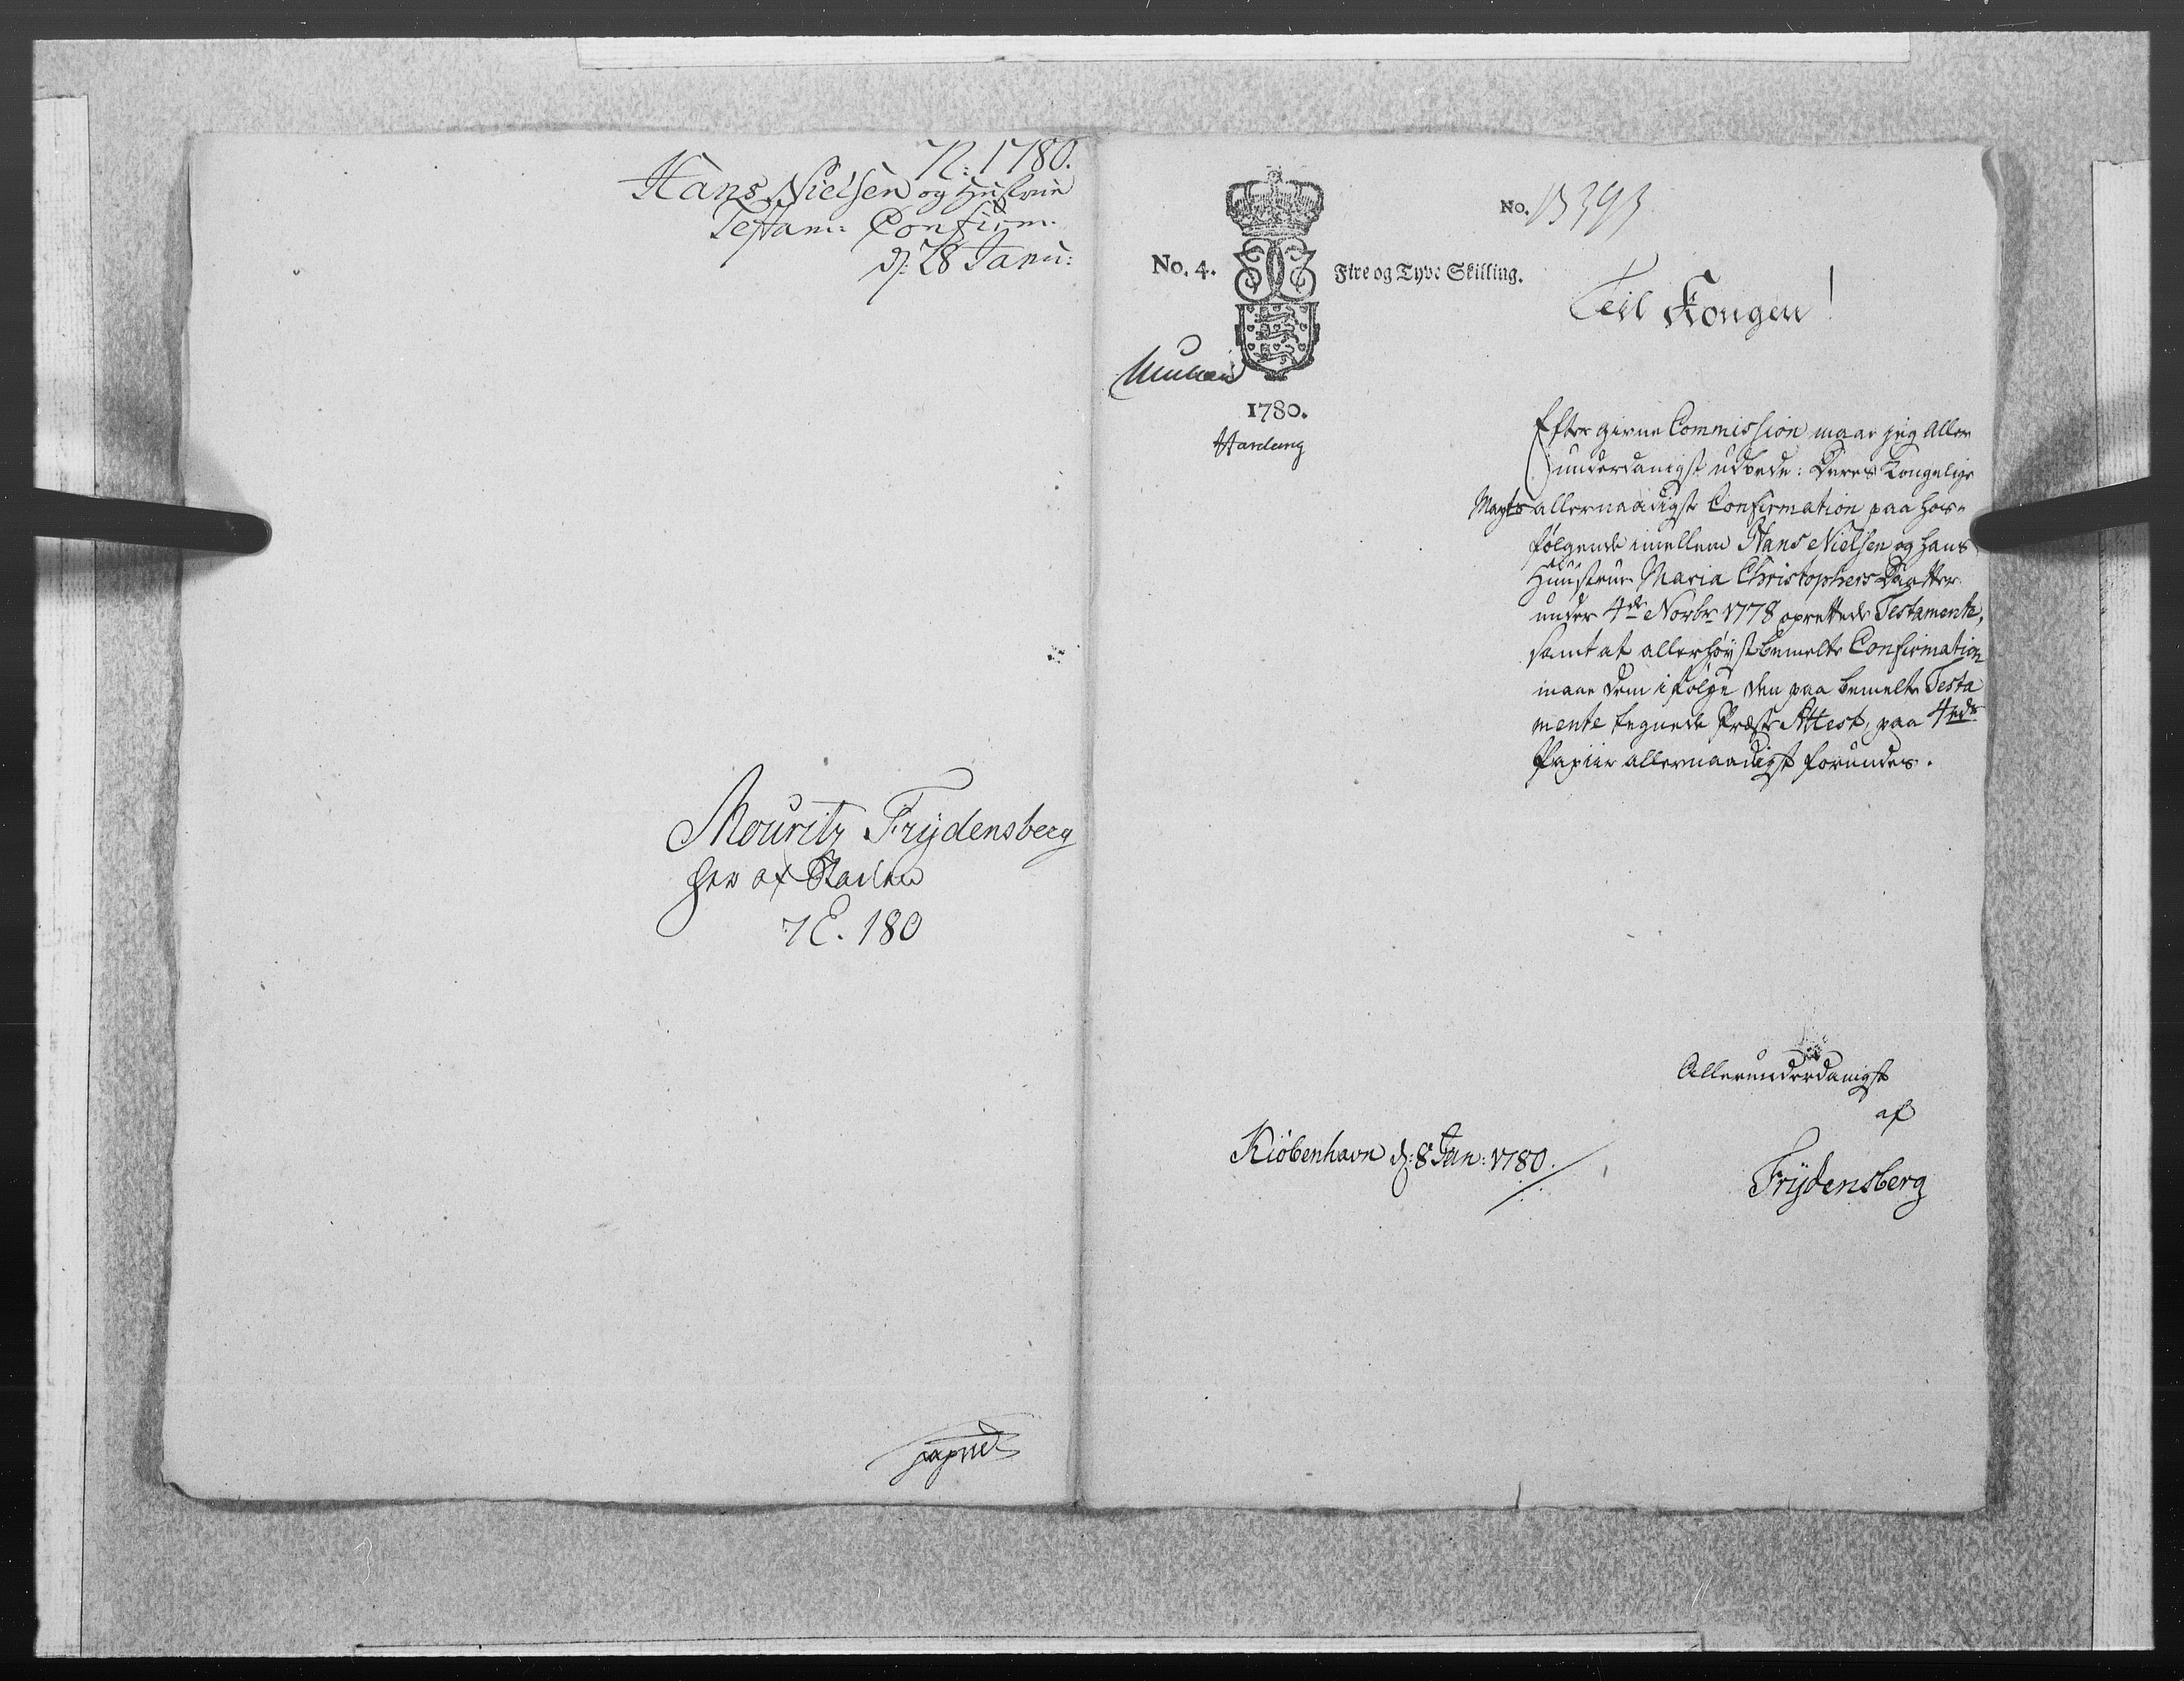 R: 1780.
Hans Nielsen og Hustrue
Testam: Confirm.
d: 28 Janu:
Mouritz Frydensberg
her af Staden
7C. 180
No. 4.
Fire og Tyve Skilling.
No. 13393
Teil Kongen!
1780.
Efter givne Commission maae jeg Aller
underdanigst udbede: Deres Kongelige
Mayts allernaadigste Confirmation paa hos-
følgende imellem Hans Nielsen og hans
Huustrue Maria Christophers Daatter
under 4de Novbr 1778 oprettede Testamente,
samt at allerhøystbemelte Confirmation
maae dem i følge den paa bemelte Testa
mente tegnede Præste Attest, paa 4de
Papiir allernaadigst forundes.
Allerunderdanigst
af
Kiöbenhavn d: 8 Jan: 1780.
Frydensberg